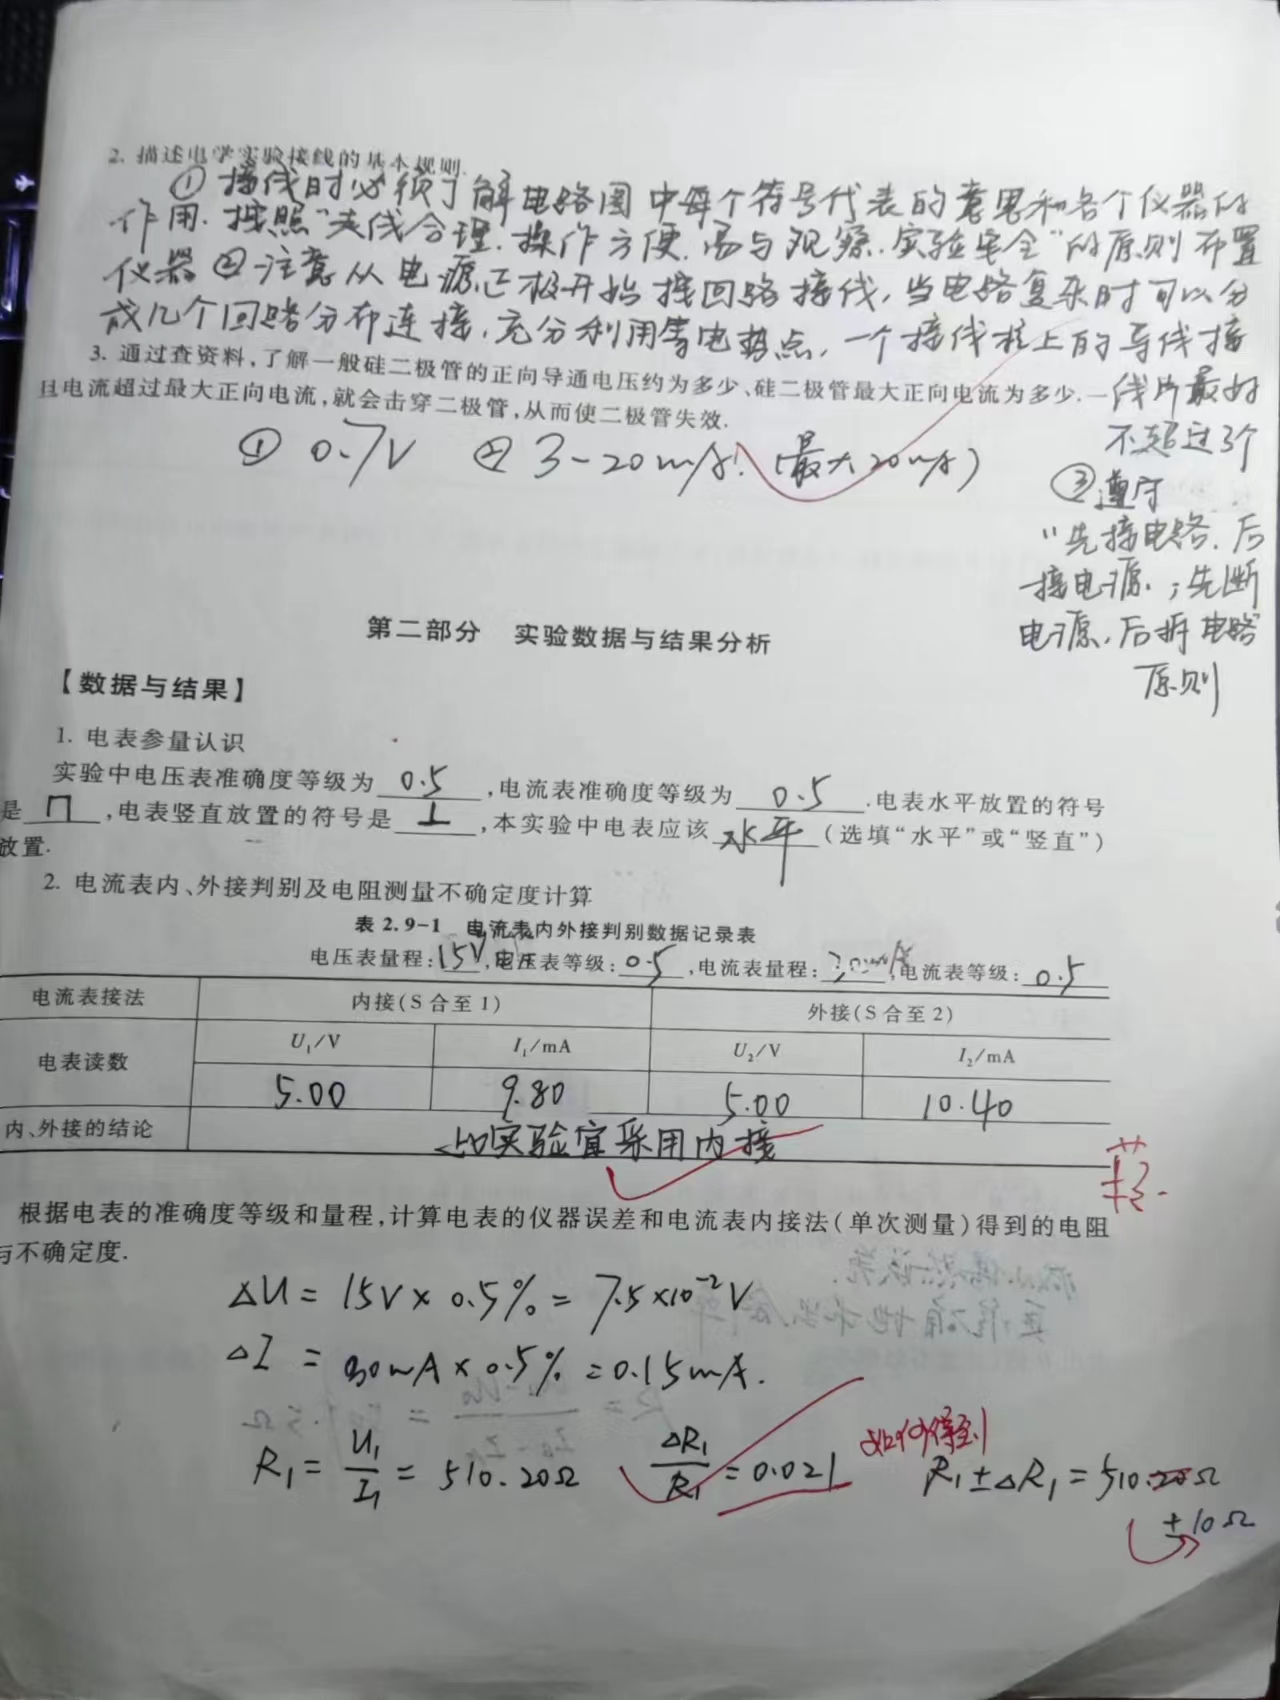 2. 描述电学实验接线的基本规则.
① 接线时必须了解电路图中每个符号代表的意思和各个仪器的
作用. 按照“走线合理. 操作方便. 易与观察. 实验安全”的原则布置
仪器 ② 注意从电源正极开始接回路接线, 当电路复杂时可以分
成几个回路分布连接, 充分利用等电势点, 一个接线柱上的导线接
线片最好
不超过3个
③ 遵守
“先接电路. 后
接电源. ; 先断
电源, 后拆电路”
原则
3. 通过查资料,了解一般硅二极管的正向导通电压约为多少、硅二极管最大正向电流为多少.一
且电流超过最大正向电流,就会击穿二极管,从而使二极管失效.
① 0.7V ② 3-20mA. (最大20mA)
第二部分 实验数据与结果分析
【数据与结果】
1. 电表参量认识
实验中电压表准确度等级为 0.5 ,电流表准确度等级为 0.5 .电表水平放置的符号
是 ⊓ ,电表竖直放置的符号是 ⊥ ,本实验中电表应该 水平 (选填“水平”或“竖直”)
放置.
2. 电流表内、外接判别及电阻测量不确定度计算
表 2.9-1 电流表内外接判别数据记录表
电压表量程: 15V ,电压表等级: 0.5 ,电流表量程: 30mA ,电流表等级: 0.5
电流表接法 内接(S 合至 1) 外接(S 合至 2)
电表读数 U₁/V I₁/mA U₂/V I₂/mA
5.00 9.80 5.00 10.40
内、外接的结论 此实验宜采用内接
根据电表的准确度等级和量程,计算电表的仪器误差和电流表内接法(单次测量)得到的电阻
与不确定度.
ΔU = 15V × 0.5% = 7.5×10⁻²V
ΔI = 30mA × 0.5% = 0.15mA.
R₁ = U₁/I₁ = 510.20Ω ΔR₁/R₁ = 0.021 如何得到 R₁±ΔR₁ = 510.20Ω
±10Ω